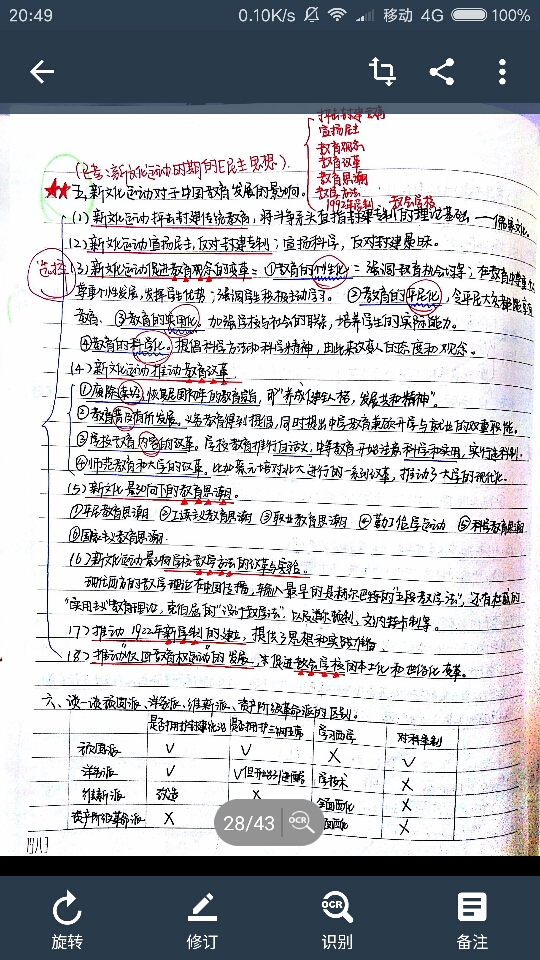 20:49 0.10K/s 移动 4G 100%
抨击封建教育
宣扬民主
教育观念
教育改革
教育思潮
教学方法
1922年学制 教会学校
(选：新文化运动时期的民主思想)
五、新文化运动对于中国教育发展的影响。
(1)新文化运动抨击封建传统教育，将斗争矛头直指封建专制的理论基础——儒家文化。
(2)新文化运动宣扬民主，反对封建专制；宣扬科学，反对封建愚昧。
选择
(3)新文化运动促进教育观念的变革：①教育的个性化：强调教育机会均等；在教育中尊重
尊重个性发展，发挥学生优势；强调学生积极主动学习。②教育的平民化，令平民大众都能享受
教育。③教育的实用化。加强学校与社会的联络，培养学生的实际能力。
④教育的科学化。提倡科学方法和科学精神，由此来改变人的态度和观念。
(4)新文化运动推动教育改革
①废除 恢复民国初年的教育宗旨，即“养成健全人格，发展共和精神”。
②教育普及有所发展。义务教育得到提倡，同时提出中学教育兼顾升学与就业的双重职能。
③学校教育内容的改革。学校教育推行白话文，中等教育开始注意科学和实用，实行选科制。
④师范教育和大学的改革。比如蔡元培对北大进行的一系列改革，推动了大学的现代化。
(5)新文化影响下的教育思潮。
①平民教育思潮 ②工读主义教育思潮 ③职业教育思潮 ④勤工俭学运动 ⑤科学教育思潮
⑥国家主义教育思潮
(6)新文化运动影响学校教学方法的改革与实验。
现代西方的教学理论在中国传播，输入最早的是赫尔巴特的“五段教学法”，还有杜威的
“实用主义”教育理论，克伯屈的“设计教学法”以及道尔顿制，文纳特卡制等。
(7)推动1922年新学制的建立，提供了思想和实践准备。
(8)推动“收回教育权运动”的发展，来促进教会学校的本土化和世俗化变革。
六、谈一谈顽固派、洋务派、维新派、资产阶级革命派的区别。
是否拥护封建统治 是否拥护三纲五常 学习西学 对科举制
顽固派 √ √ × √
洋务派 √ √但开始引进西学 学技术 ×
维新派 改造 × 全面西化 ×
资产阶级革命派 × 面西化 ×
28/43 OCR
旋转 修订 OCR 识别 备注